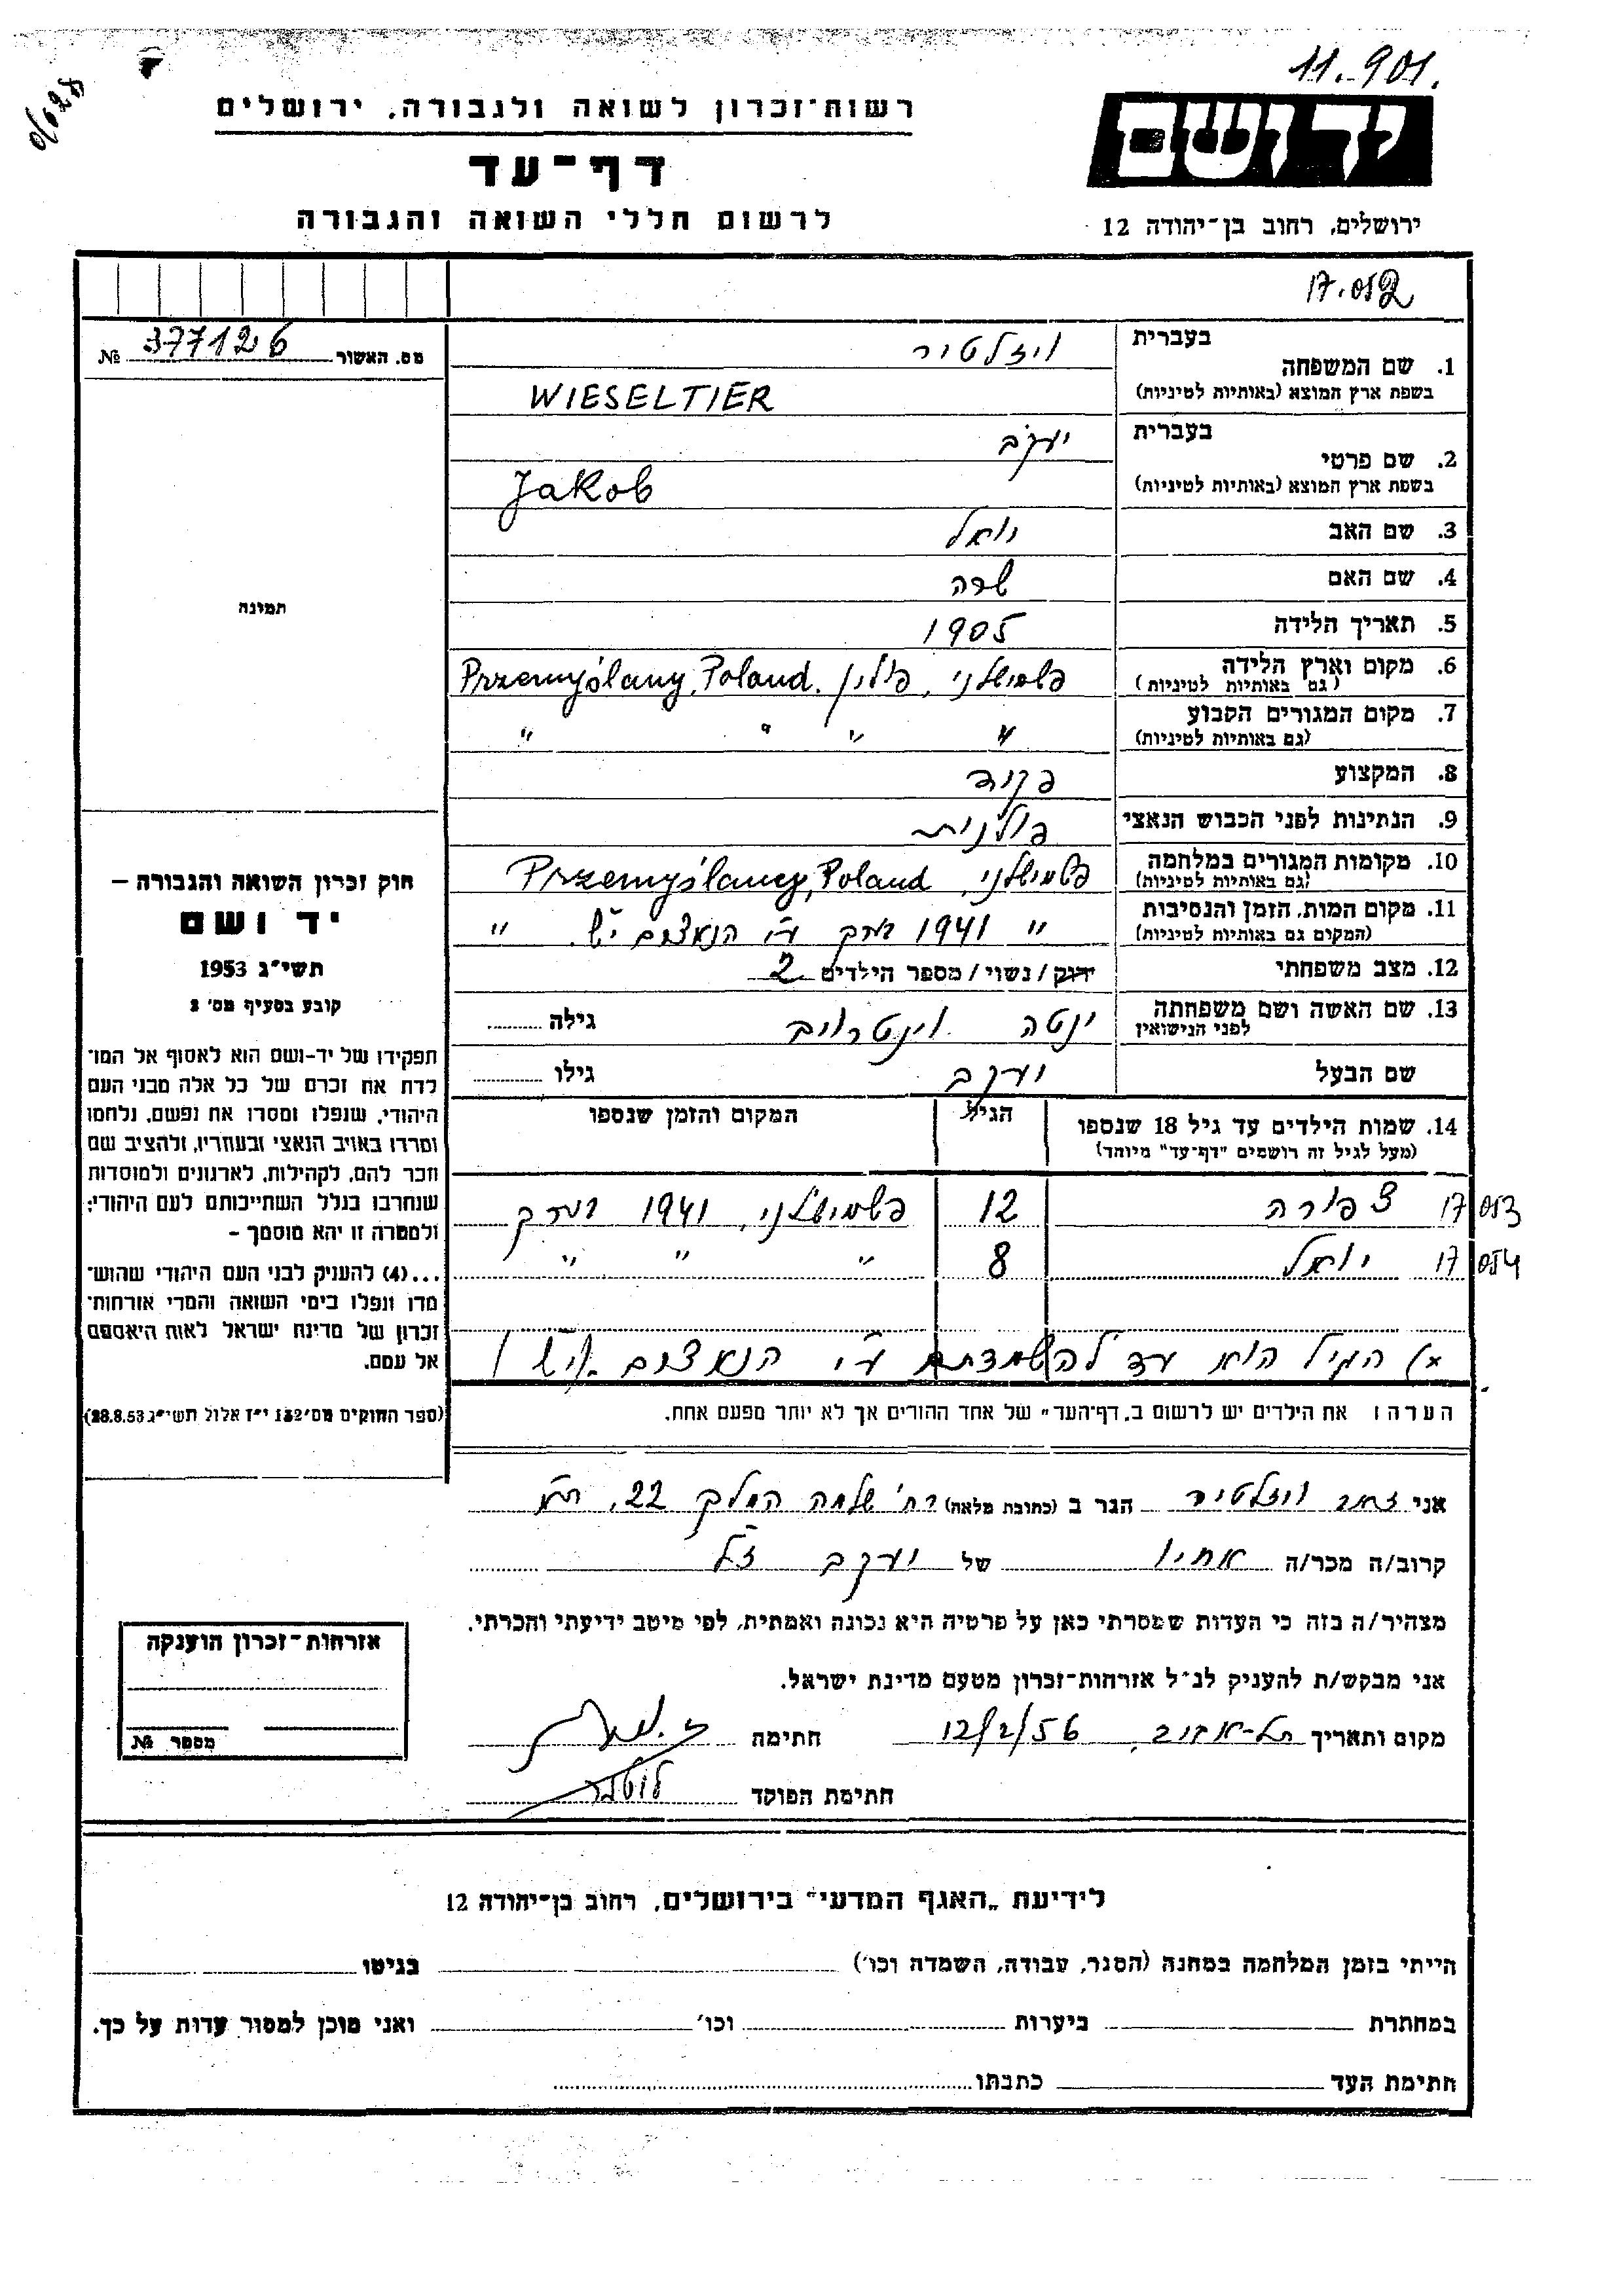 11.901.
רשות־זכרון לשואה ולגבורה, ירושלים
דף־עד
לרשום חללי השואה והגבורה
יד ושם
ירושלים, רחוב בן־יהודה 12
17.052
מס. האשור 377126 №
תמונה
חוק זכרון השואה והגבורה –
יד ושם
תשי"ג 1953
קובע בסעיף מס' 2
תפקידו של יד-ושם הוא לאסוף אל המו־
לדת את זכרם של כל אלה מבני העם
היהודי, שנפלו ומסרו את נפשם, נלחמו
ומרדו באויב הנאצי ובעוזריו, ולהציב שם
וזכר להם, לקהילות, לארגונים ולמוסדות
שנחרבו בגלל השתייכותם לעם היהודי;
ולמטרה זו יהא מוסמך –
...(4) להעניק לבני העם היהודי שהוש־
מדו ונפלו בימי השואה והמרי אזרחות־
זכרון של מדינת ישראל לאות היאספם
אל עמם.
(ספר החוקים מס' 132 י"ז אלול תשי"ג 28.8.53)
1. שם המשפחה
בעברית ויזלטיר
בשפת ארץ המוצא (באותיות לטיניות) WIESELTIER
2. שם פרטי
בעברית יעקב
בשפת ארץ המוצא (באותיות לטיניות) Jakob
3. שם האב יואל
4. שם האם שרה
5. תאריך הלידה 1905
6. מקום וארץ הלידה פשמישלני, פולין. Przemyślany, Poland.
(גם באותיות לטיניות)
7. מקום המגורים הקבוע " " " "
(גם באותיות לטיניות)
8. המקצוע פקיד
9. הנתינות לפני הכבוש הנאצי פולנית
10. מקומות המגורים במלחמה פשמישלני, Przemyślany, Poland
(גם באותיות לטיניות)
11. מקום המות, הזמן והנסיבות " 1941 ע"י הנאצים יש". "
(המקום גם באותיות לטיניות)
12. מצב משפחתי רווק/נשוי/מספר הילדים 2
13. שם האשה ושם משפחתה ינטה וינטרויב גילה
לפני הנישואין
שם הבעל יעקב גילו
14. שמות הילדים עד גיל 18 שנספו הגיל המקום והזמן שנספו
(מעל לגיל זה רושמים "דף־עד" מיוחד)
17053 צפורה 12 פשמישלני, 1941
17054 יואל 8 " " "
x) הגיל הוא עד להשמדתם ע"י הנאצים יש"ו
הערה: את הילדים יש לרשום ב"דף־העד" של אחד ההורים אך לא יותר מפעם אחת.
אני ויזלטיר הגר ב (כתובת מלאה) רח' שלמה המלך 22, ת"א
קרוב/ה מכר/ה אחיו של יעקב ז"ל
מצהיר/ה בזה כי העדות שמסרתי כאן על פרטיה היא נכונה ואמתית, לפי מיטב ידיעתי והכרתי.
אני מבקש/ת להעניק לנ"ל אזרחות־זכרון מטעם מדינת ישראל.
מקום ותאריך תל-אביב, 12/2/56 חתימה
חתימת הפוקד
אזרחות־זכרון הוענקה
מספר №
לידיעת "האגף המדעי" בירושלים, רחוב בן־יהודה 12
הייתי בזמן המלחמה במחנה (הסגר, עבודה, השמדה וכו') בגיטו
במחתרת ביערות וכו' ואני מוכן למסור עדות על כך.
חתימת העד כתבתו